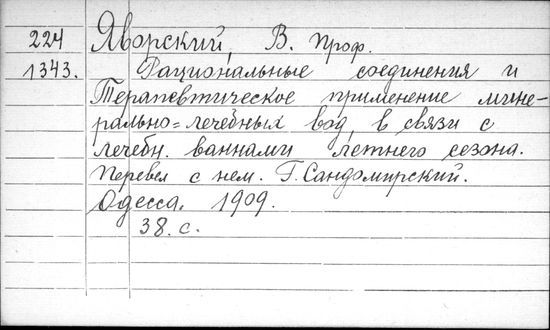 224 Яворский, В. Проф.
1343. Рациональные соединения и
Терапевтическое применение мине-
рально=лечебных вод, в связи с
лечебн. ваннами летнего сезона.
Перевел с нем. Г. Сандомирский.
Одесса. 1909.
38. с.